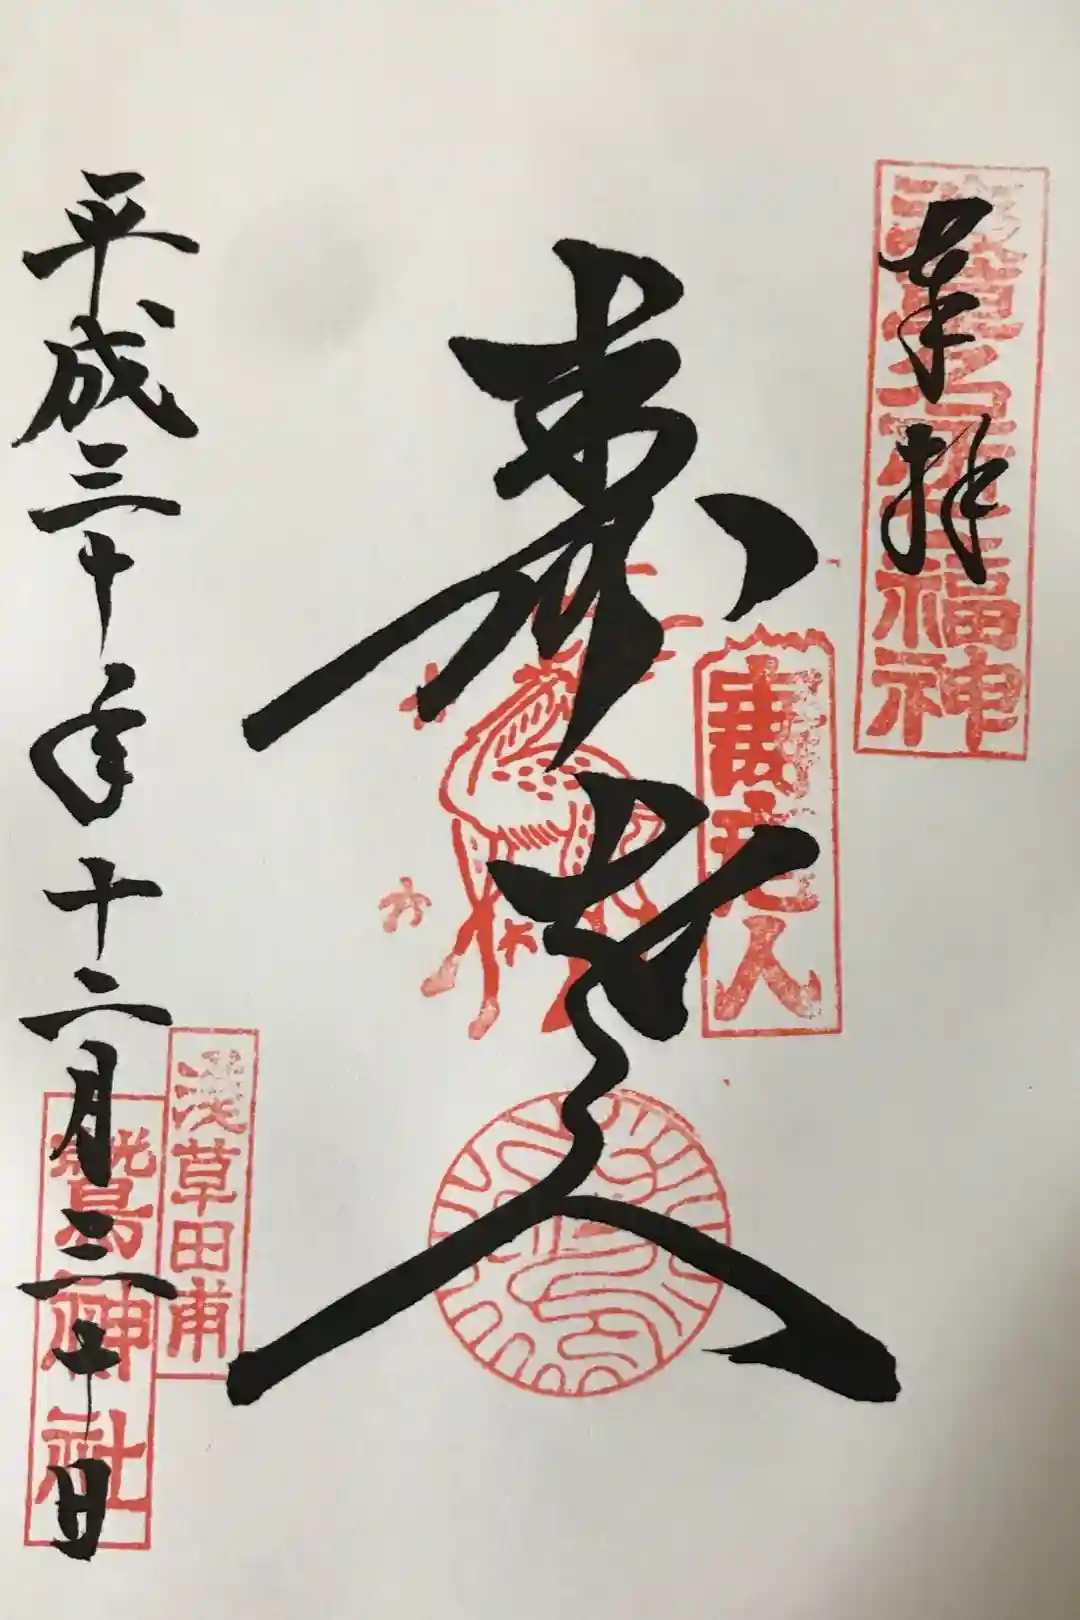 奉拝
浅草名所七福神
寿老人
寿老人
平成三十年十二月三十日
浅草田甫
鷲神社